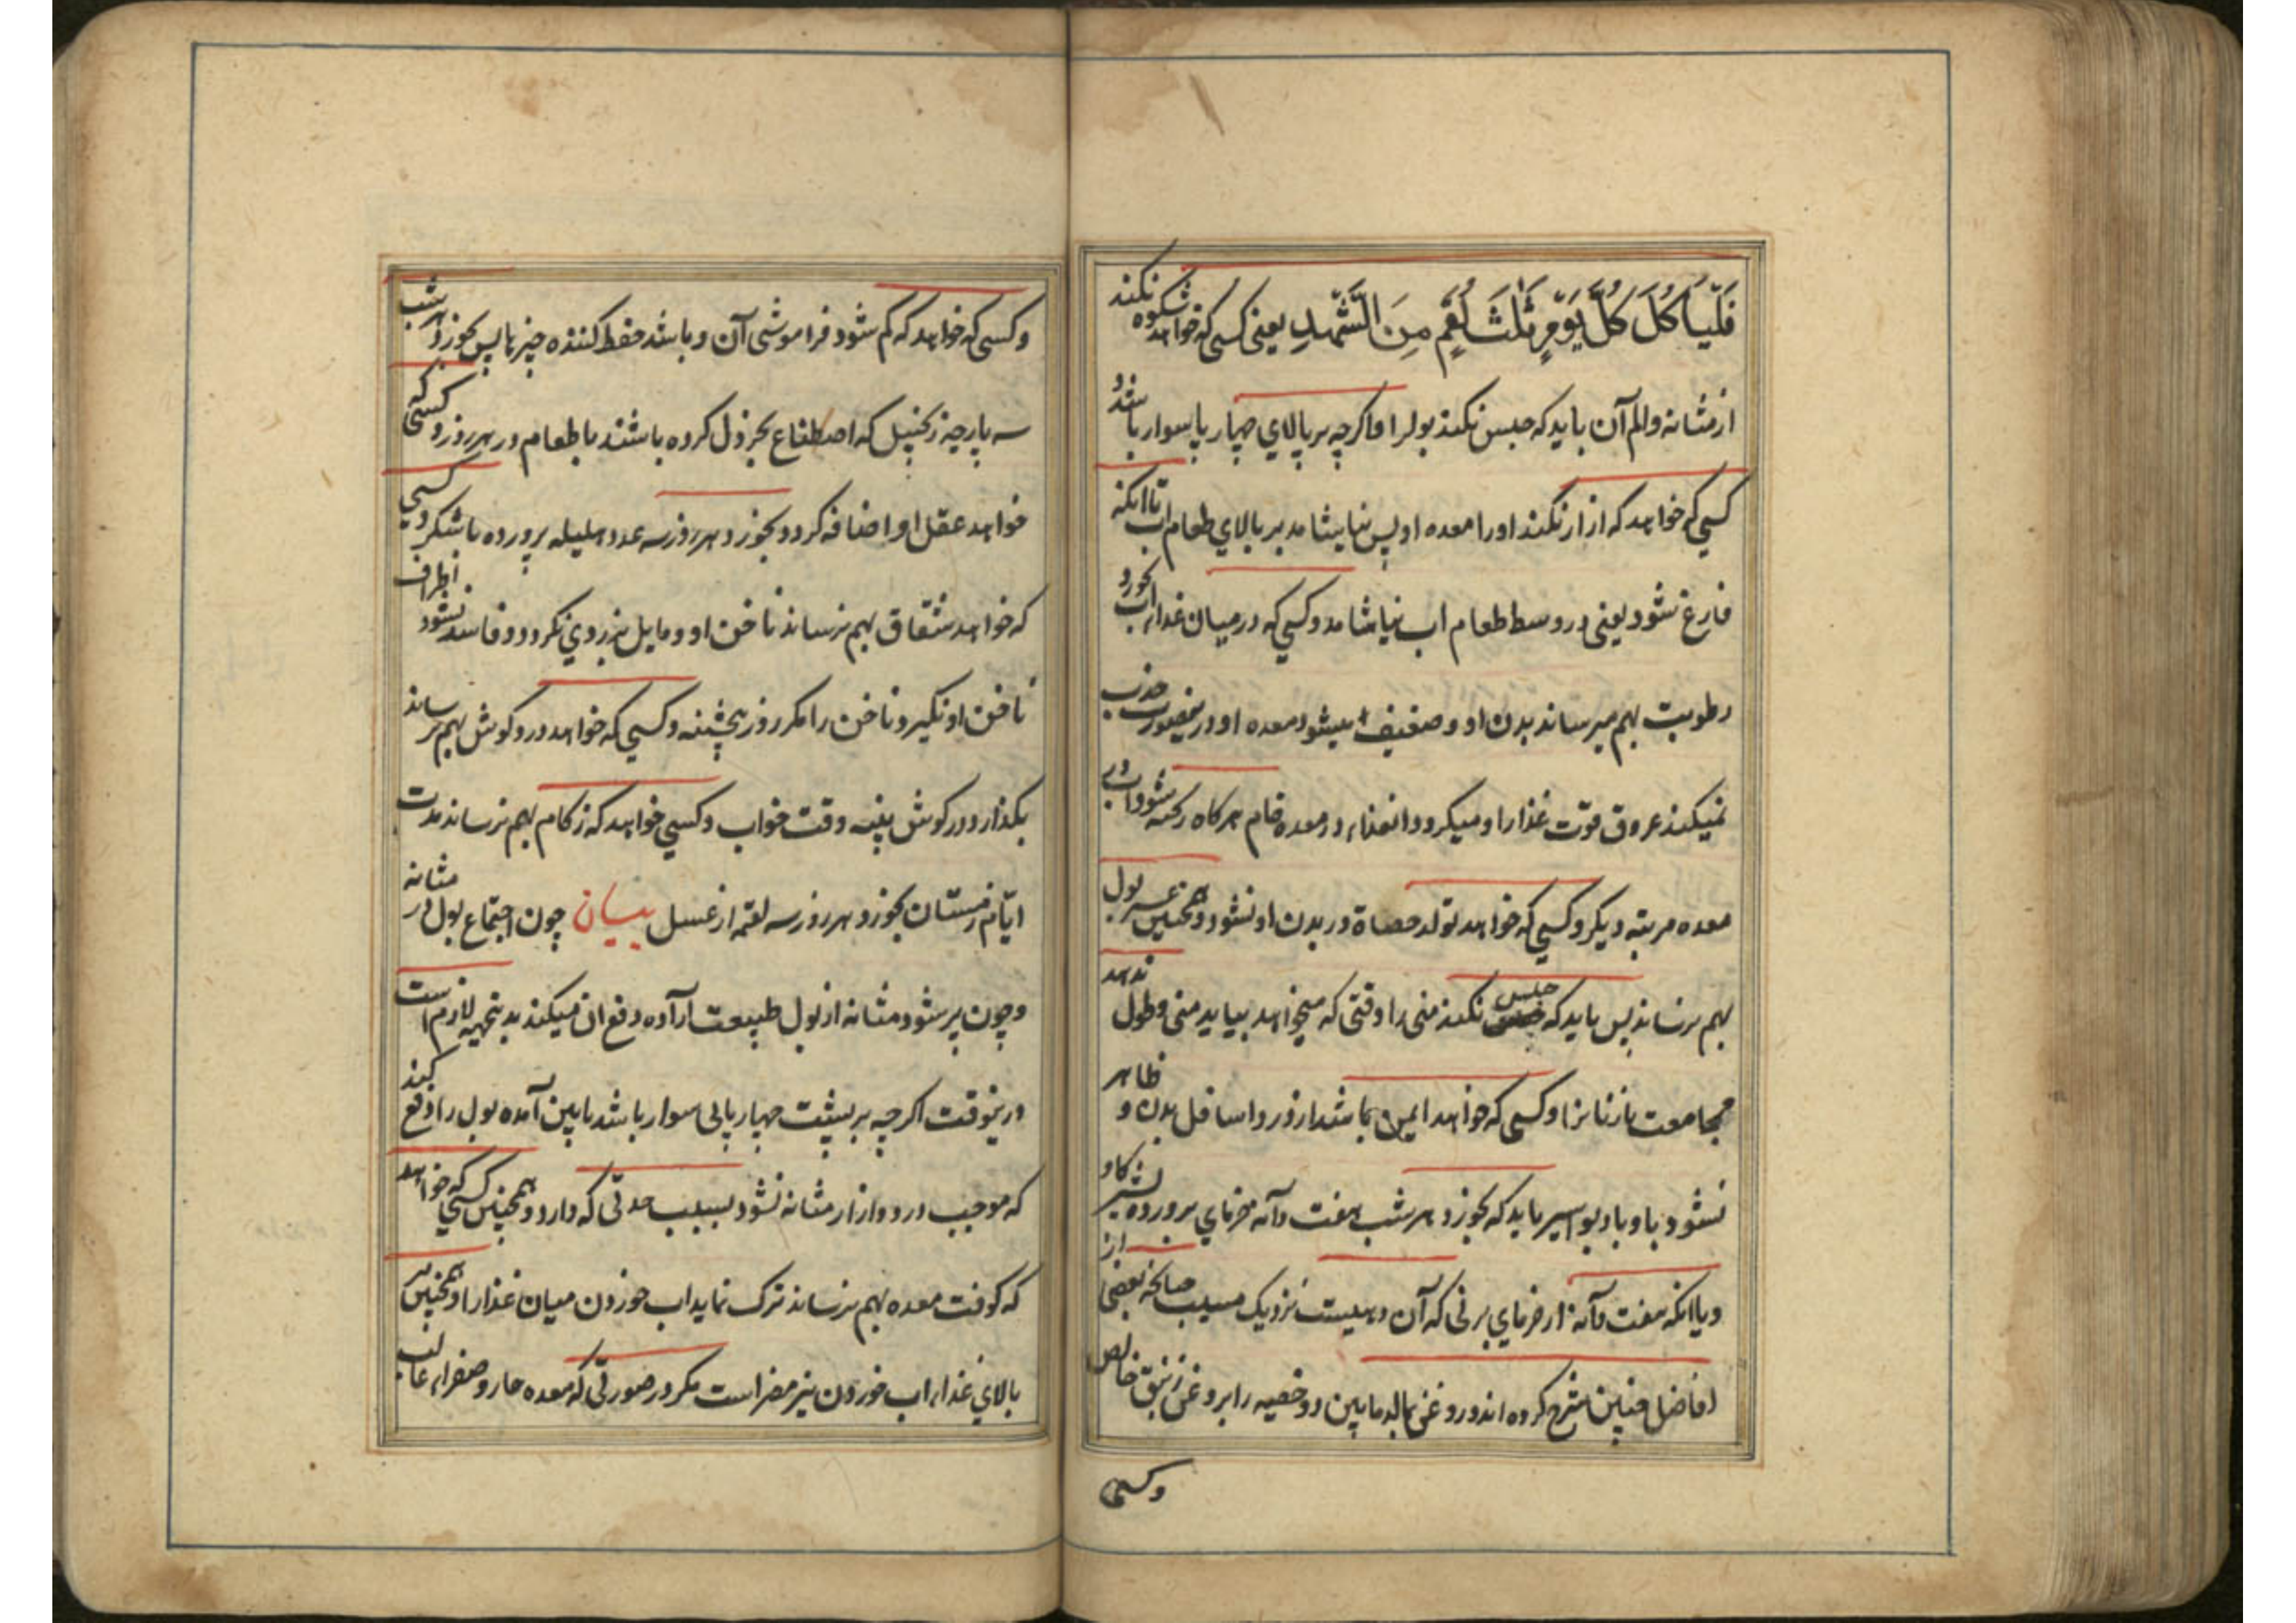 فَلْيَأْكُلْ كُلَّ يَوْمٍ ثَلٰثَ لُقَمٍ مِنَ الشَّهْدِ یعنی کسی که خواهد شکوه نکند
از مثانه والم آن باید که حبس نکند بول را و اکرچه بر بالای چهارپا سوار باشد و
کسی که خواهد که ازار نکند اورا معده او پس نیاشامد بر بالای طعام اب تا انکه
فارغ شود یعنی در وسط طعام اب نیاشامد و کسی که در میان غذا اب بخورد
رطوبت بهم میرساند بدن او و ضعیف میشود معده او و درینصورت جذب
نمیکند عروق قوت غذا را و میکردد انغذا در معده خام هرکاه ریخته شود اب در
معده مرتبه دیکر و کسی که خواهد تولد حصاة در بدن او نشود و همچنین عسر بول
بهم نرساند پس باید که حبس نکند منی را وقتی که میخواهد بیاید منی و طول ندهد
مجامعت با زنانرا و کسی که خواهد ایمن باشد از زور و اسافل بدن و ظاهر
نشود باو باد بواسیر باید که بخورد هر شب هفت دانه خرمای پرورده بشیر کاو
و یا انکه هفت دانه از خرمای برنی که آن دهیست نزدیک صالحه بعضی از
افاضل چنین شرح کرده اند و روغن بمالد مابین دو خصیه را بروغن زنبق خالص
وکسی
وکسی که خواهد که کم شود فراموشی آن و باشد حفظ کننده چیزها پس بخورد هر شب
سه پارچه زنجبیل که اصطناع بخردل کرده باشند با طعام در هر روز و کسی که
خواهد عقل او اضافه کردد بخورد هر روز سه عدد هلیله پرورده با شکر و کسی
که خواهد شقاق بهم نرساند ناخن او و مایل بزردی نکردد و فاسد نشود اطراف
ناخن او نکیرد ناخن را مکر روز پنجشنبه و کسی که خواهد درد کوش بهم نرساند
بکذارد در کوش پنبه وقت خواب و کسی خواهد که زکام بهم نرساند مدت
ایّام زمستان بخورد هر روز سه لقمه از عسل بیان چون اجتماع بول در مثانه
و چون پر شود مثانه از بول طبیعت اراده دفع ان میکند بدینجهة لازم است
درینوقت اکرچه بر پشت چهارپائی سوار باشد پایین آمده بول را دفع کند
که موجب درد و ازار مثانه نشود بسبب حدتی که دارد و همچنین کسی که خواهد
که کوفت معده بهم نرساند ترک نماید اب خوردن میان غذا را و همچنین بر
بالای غذا اب خوردن نیز مضر است مکر در صورتی که معده حار و صفرا غالب